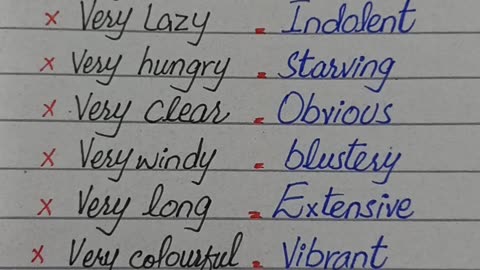 × Very Lazy = Indolent
× Very hungry = Starving
× Very clear = Obvious
× Very windy = blustery
× Very long = Extensive
× Very colourful = Vibrant